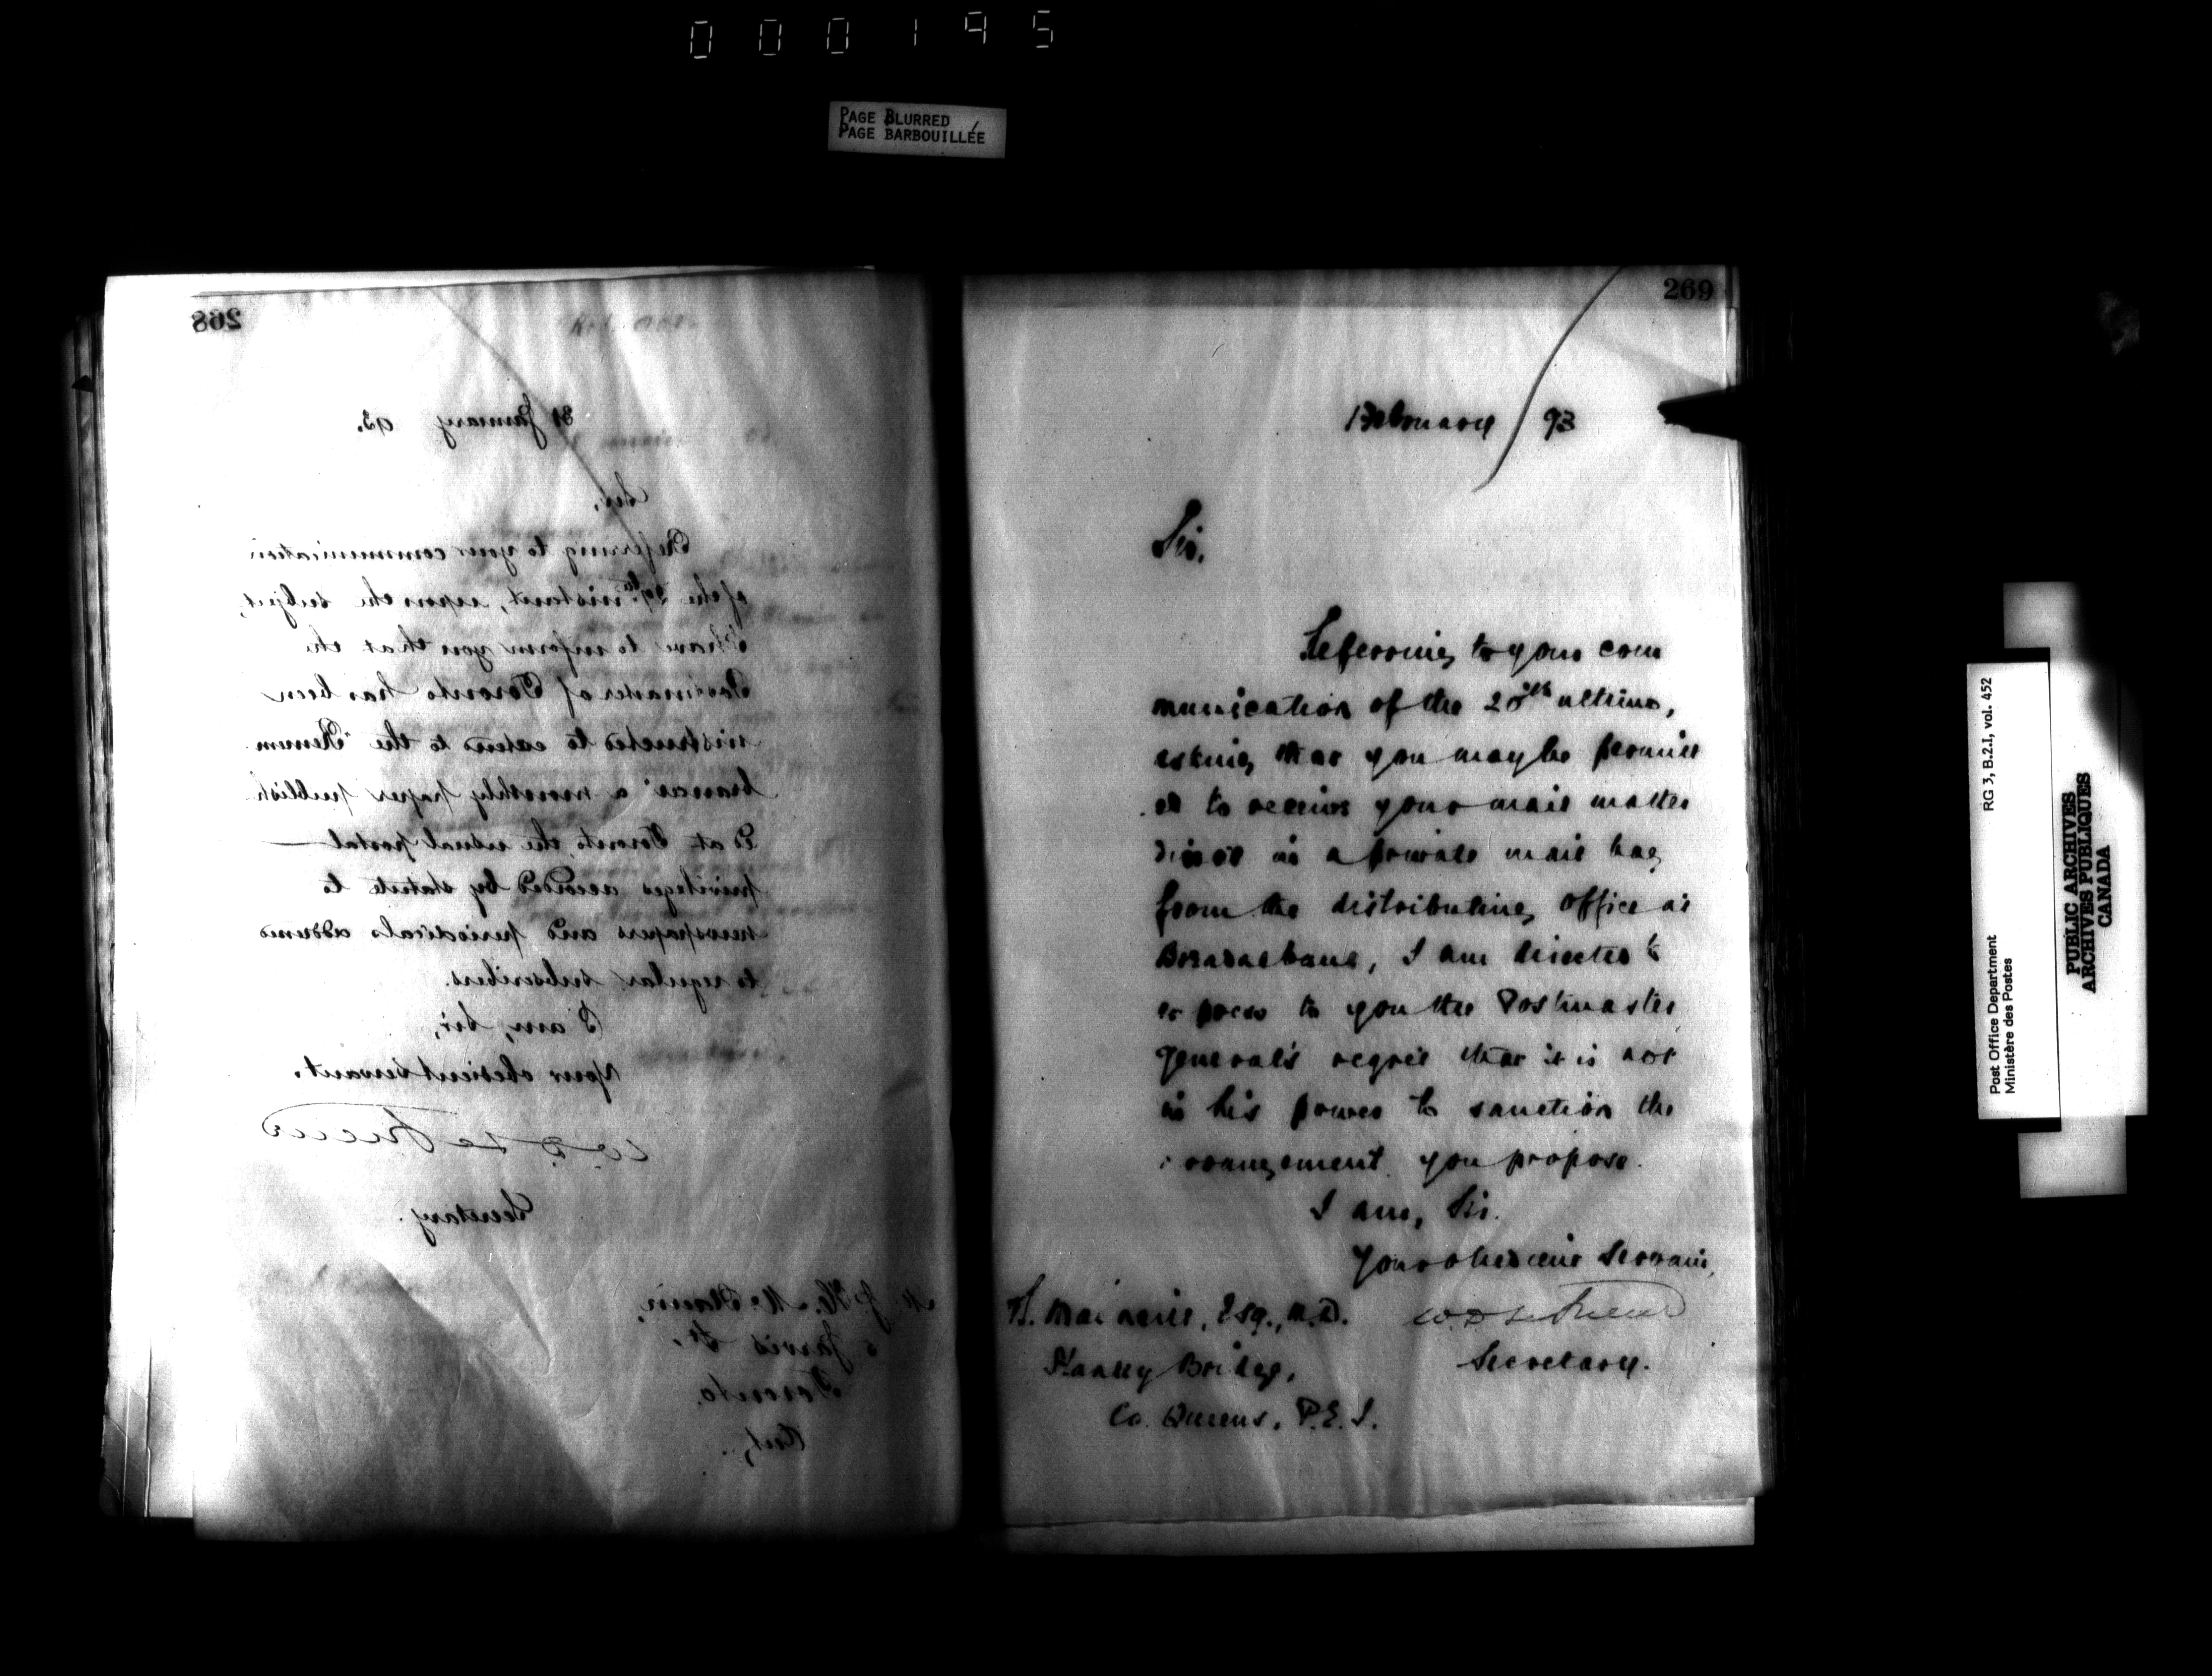 000195
PAGE BLURRED
PAGE BARBOUILLÉE
268
31 January 93.
Sir,
Referring to your communication
of the 29th instant, upon the subject,
I have to inform you that the
Postmaster of Toronto has been
instructed to extend to the "Remem
brancer" a monthly paper publish
ed at Toronto, the usual postal
privileges accorded by statute to
newspapers and periodicals addressed
to regular subscribers.
I am, Sir,
Your obedient servant.
W.D. LeSueur
Secretary.
Jarvis St,
Toronto.
Ont,
269
1 February 93
Sir.
Referring to your com
munication of the 28th ultimo,
asking that you may be permitt
ed to receive your mail matter
direct in a private mail bag
from the distributing office at
Breadalbane, I am directed to
express to you the Postmaster
General's regret that it is not
in his power to sanction the
arrangement you propose.
I am, Sir.
Your obedient Servant,
W.D. LeSueur
Secretary.
Esq., M.D.
Stanley Bridge,
Co. Queens, P.E.I.
Post Office Department
Ministère des Postes
RG 3, B.2.I, vol. 452
PUBLIC ARCHIVES
ARCHIVES PUBLIQUES
CANADA